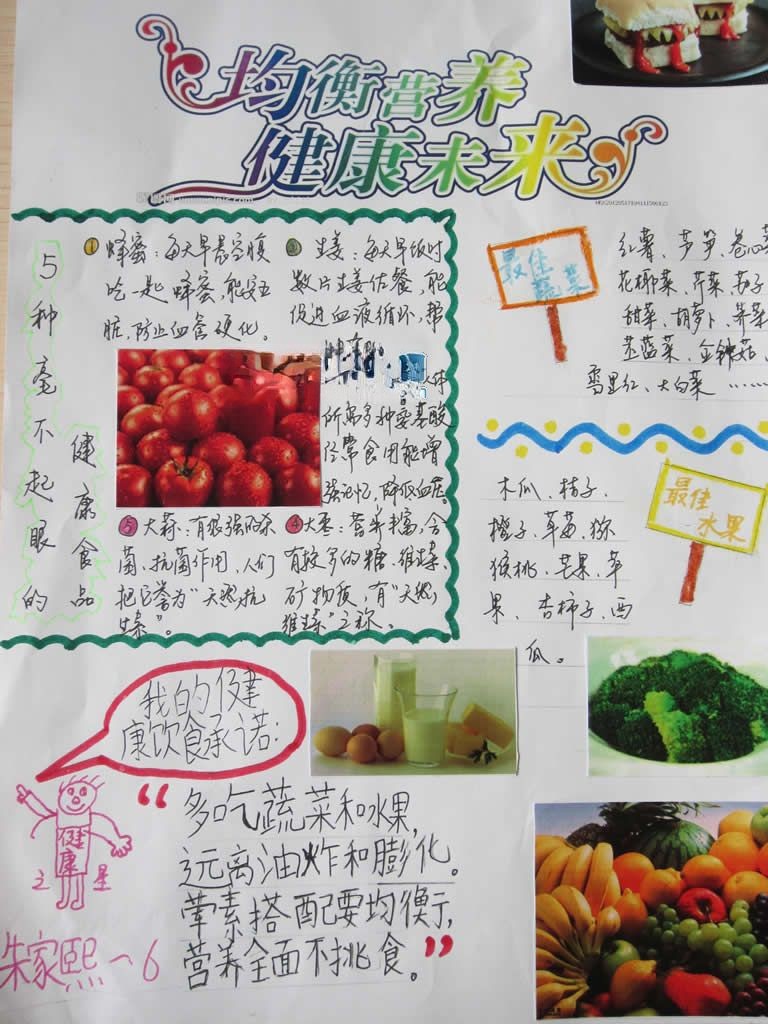 均衡营养
健康未来
5种毫不起眼的
健康食品
① 蜂蜜：每天早晨空腹
吃一匙蜂蜜，能安五
脏，防止血管硬化。
② 生姜：每天早饭时
数片生姜佐餐，能
促进血液循环，帮
人体
所需多种氨基酸
经常食用能增
强记忆，降低血压。
⑤ 大蒜：有很强的杀
菌、抗菌作用，人们
把它誉为“天然抗
生素”。
④ 大枣：营养丰富，含
有较多的糖、维生素、
矿物质，有“天然
维生素”之称。
最佳
蔬菜
红薯、芦笋、卷心菜
花椰菜、芹菜、茄子
甜菜、胡萝卜、荠菜
苤蓝菜、金针菇、
雪里红、大白菜……
最佳
水果
木瓜、桔子、
橙子、草莓、猕
猴桃、芒果、苹
果、杏柿子、西
瓜。
我的健
康饮食承诺：
“多吃蔬菜和水果，
远离油炸和膨化。
荤素搭配要均衡，
营养全面不挑食。”
健康
之星
朱家熙一6